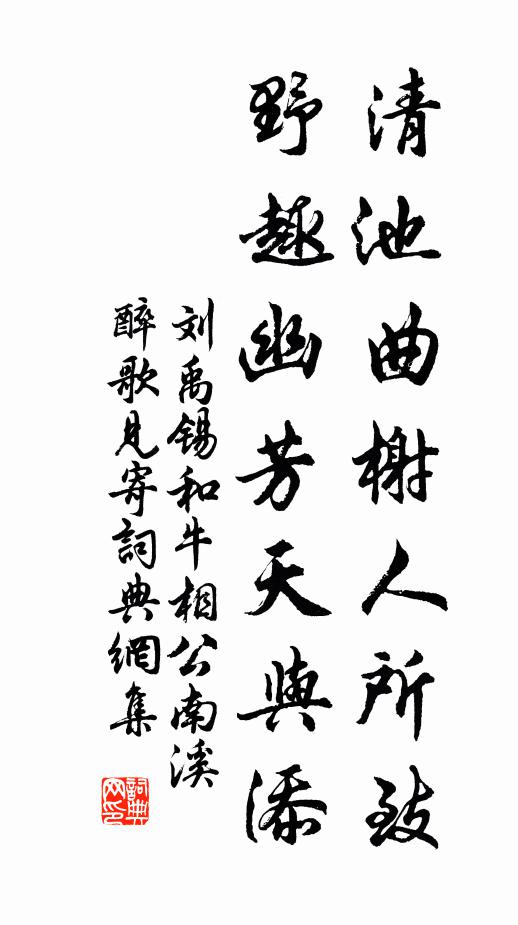 清池曲榭人所致
野趣幽芳天與添
刘禹锡和牛相公南溪
醉歌見寄詞典網集
詞典网印